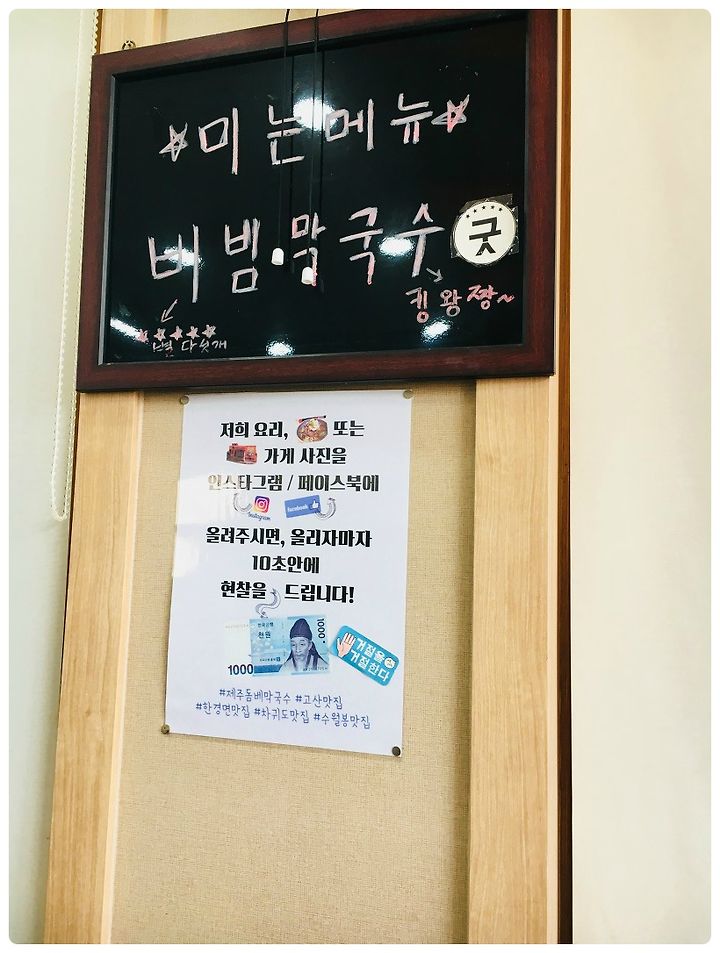 미는메뉴
비빔막국수 굿
킹왕짱~
별 다섯개
저희 요리, 또는
가게 사진을
인스타그램 / 페이스북에
Instagram facebook
올려주시면, 올리자마자
10초안에
현찰을 드립니다!
한국은행 1000
천원
1000
거절을
거절한다
#제주돔베막국수 #고산맛집
#한경면맛집 #차귀도맛집 #수월봉맛집